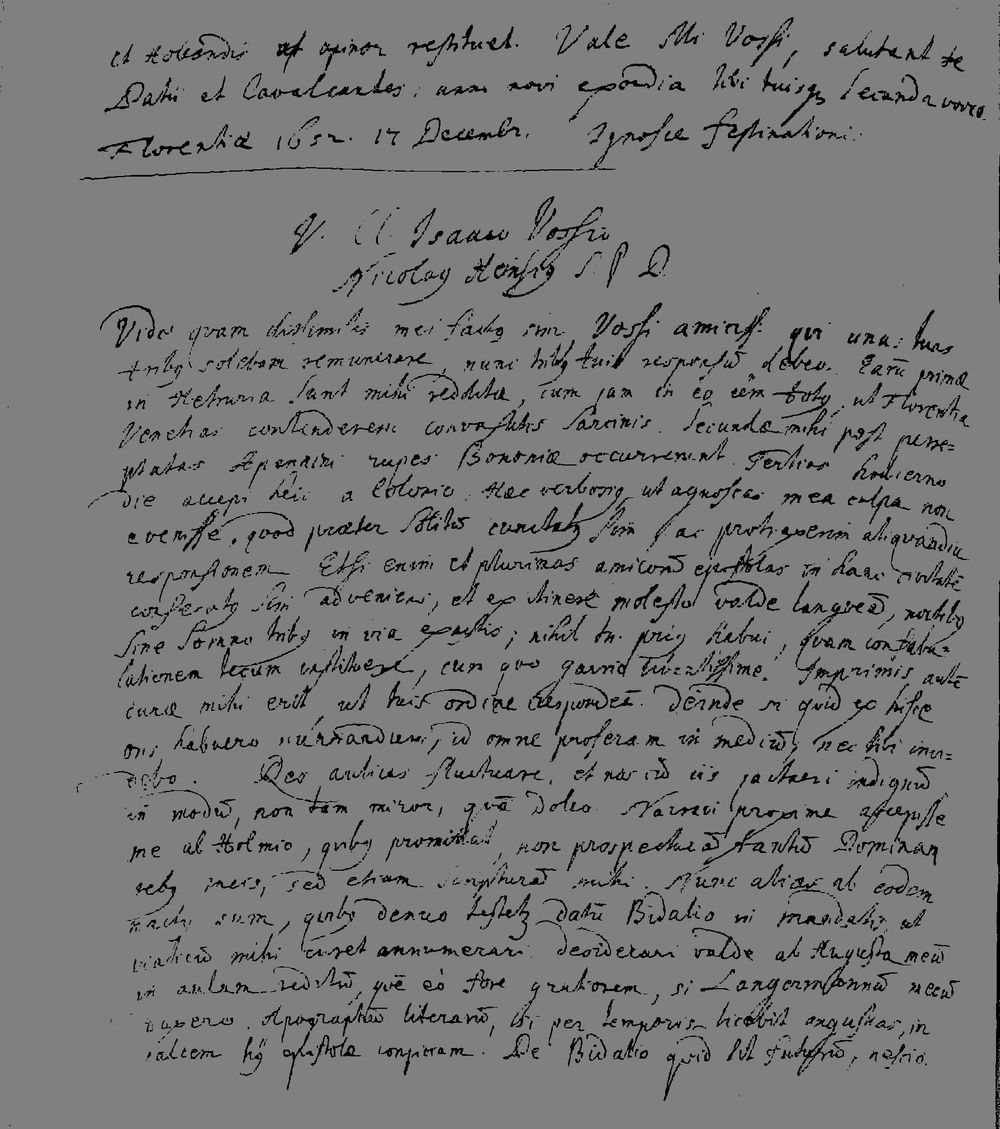 et Hollandis ut opinor restituet. Vale Mi Vossi, salutant te
Datii et Cavalcantes: anni novi exordia tibi tuisq; secunda voveo.
Florentiæ 1652. 17 Decembr. Ignosce festinationi.
V. Cl. Isaaco Vossio
Nicolaus Heinsius S. P. D.
Vide quam dissimilis mei factus sim Vossi amiciss: qui unas tuas
tribus solebam remunerare, nunc tribus tuis responsū debeo. Earū primæ
in Hetruria sunt mihi redditæ, cum jam in eo eēm totus, ut Florentia
Venetias contenderem convasatis sarcinis. Secundæ mihi post perre-
ptatas Apennini rupes Bononiæ occurrerunt. Tertias hodierno
die accepi heic a Hac verbosius, ut agnoscas mea culpa non
evenisse, quod præter solitū cunctatus sim ac protraxerim aliquandiu
responsionem. Etsi enim et plurimas amicorū epistolas in hanc civitatē
sim adveniens, et ex itinere molesto valde langueā, noctibus
sine somno tribus in via exactis; nihil tn. prius habui, quam confabu-
lationem tecum instituere, cum quo garrio Imprimis autē
curæ mihi erit, ut tuis ordine respondeā. Deinde si quid ex hisce
oris habuero id omne proferam in mediū, nec tibi invi-
debo. Res aulicas fluctuare, et nos cū iis jactari indignū
in modū, non tam miror, quā doleo. Narravi proxime accepisse
me ab Holmio, quibus promittat, non prospecturā tantū Dominam
rebus meis, sed etiam scripturā mihi. Nunc alias ab eodem
nactus sum, quibus denuo testatur datū Bidalio in mandatis, ut
viaticū mihi curet annumerari. desiderari valde ab Augusta meū
in aulam reditū, quē eo fore gratiorem, si Langermannū mecū
duxero. Apographū literarū, si per temporis licebit angustias, in
calcem hujus epistolæ conjiciam. De Bidalio quid sit futurū, nescio.